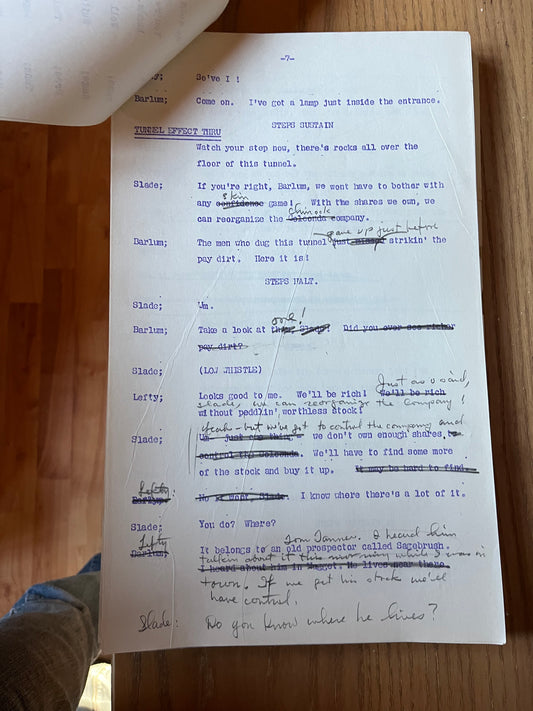 -7-
y; So've I !
Barlum; Come on. I've got a lamp just inside the entrance.
STEPS SUSTAIN
TUNNEL EFFECT THRU
Watch your step now, there's rocks all over the
floor of this tunnel.
Slade; If you're right, Barlum, we wont have to bother with
skin
any confidence game! With the shares we own, we
Chinook
can reorganize the Golconda company.
gave up just before
Barlum; The men who dug this tunnel just strikin' the
pay dirt. Here it is!
STEPS HALT.
Slade; Um.
one!
Barlum; Take a look at this, Slade! Did you ever see richer
pay dirt?
Slade; (LOW WHISTLE)
Just as u said,
Lefty; Looks good to me. We'll be rich! We'll be rich
Slade, we can reorganize the Company!
without peddlin' worthless stock!
Yeah - but we've got to control the company and
Slade; Um- just one thing - we don't own enough shares, to
control the Golconda. We'll have to find some more
of the stock and buy it up. It may be hard to find.
Lefty
Barlum; No it wont, Slade. I know where there's a lot of it.
Slade; You do? Where?
Lefty Tom Tanner. I heard him
Barlum; It belongs to an old prospector called Sagebrush.
talkin about it this morning while I was in
I heard about him in Nugget. He lives near there.
town. If we get his stock we'll
have control.
Slade: Do you know where he lives?